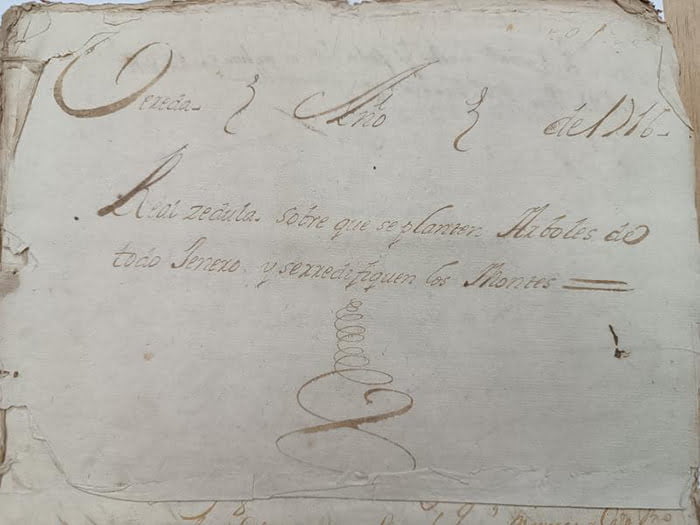 Vereda Año de 1716
Real zedula sobre que se planten Arboles de
todo Jenero y serredifiquen los Montes